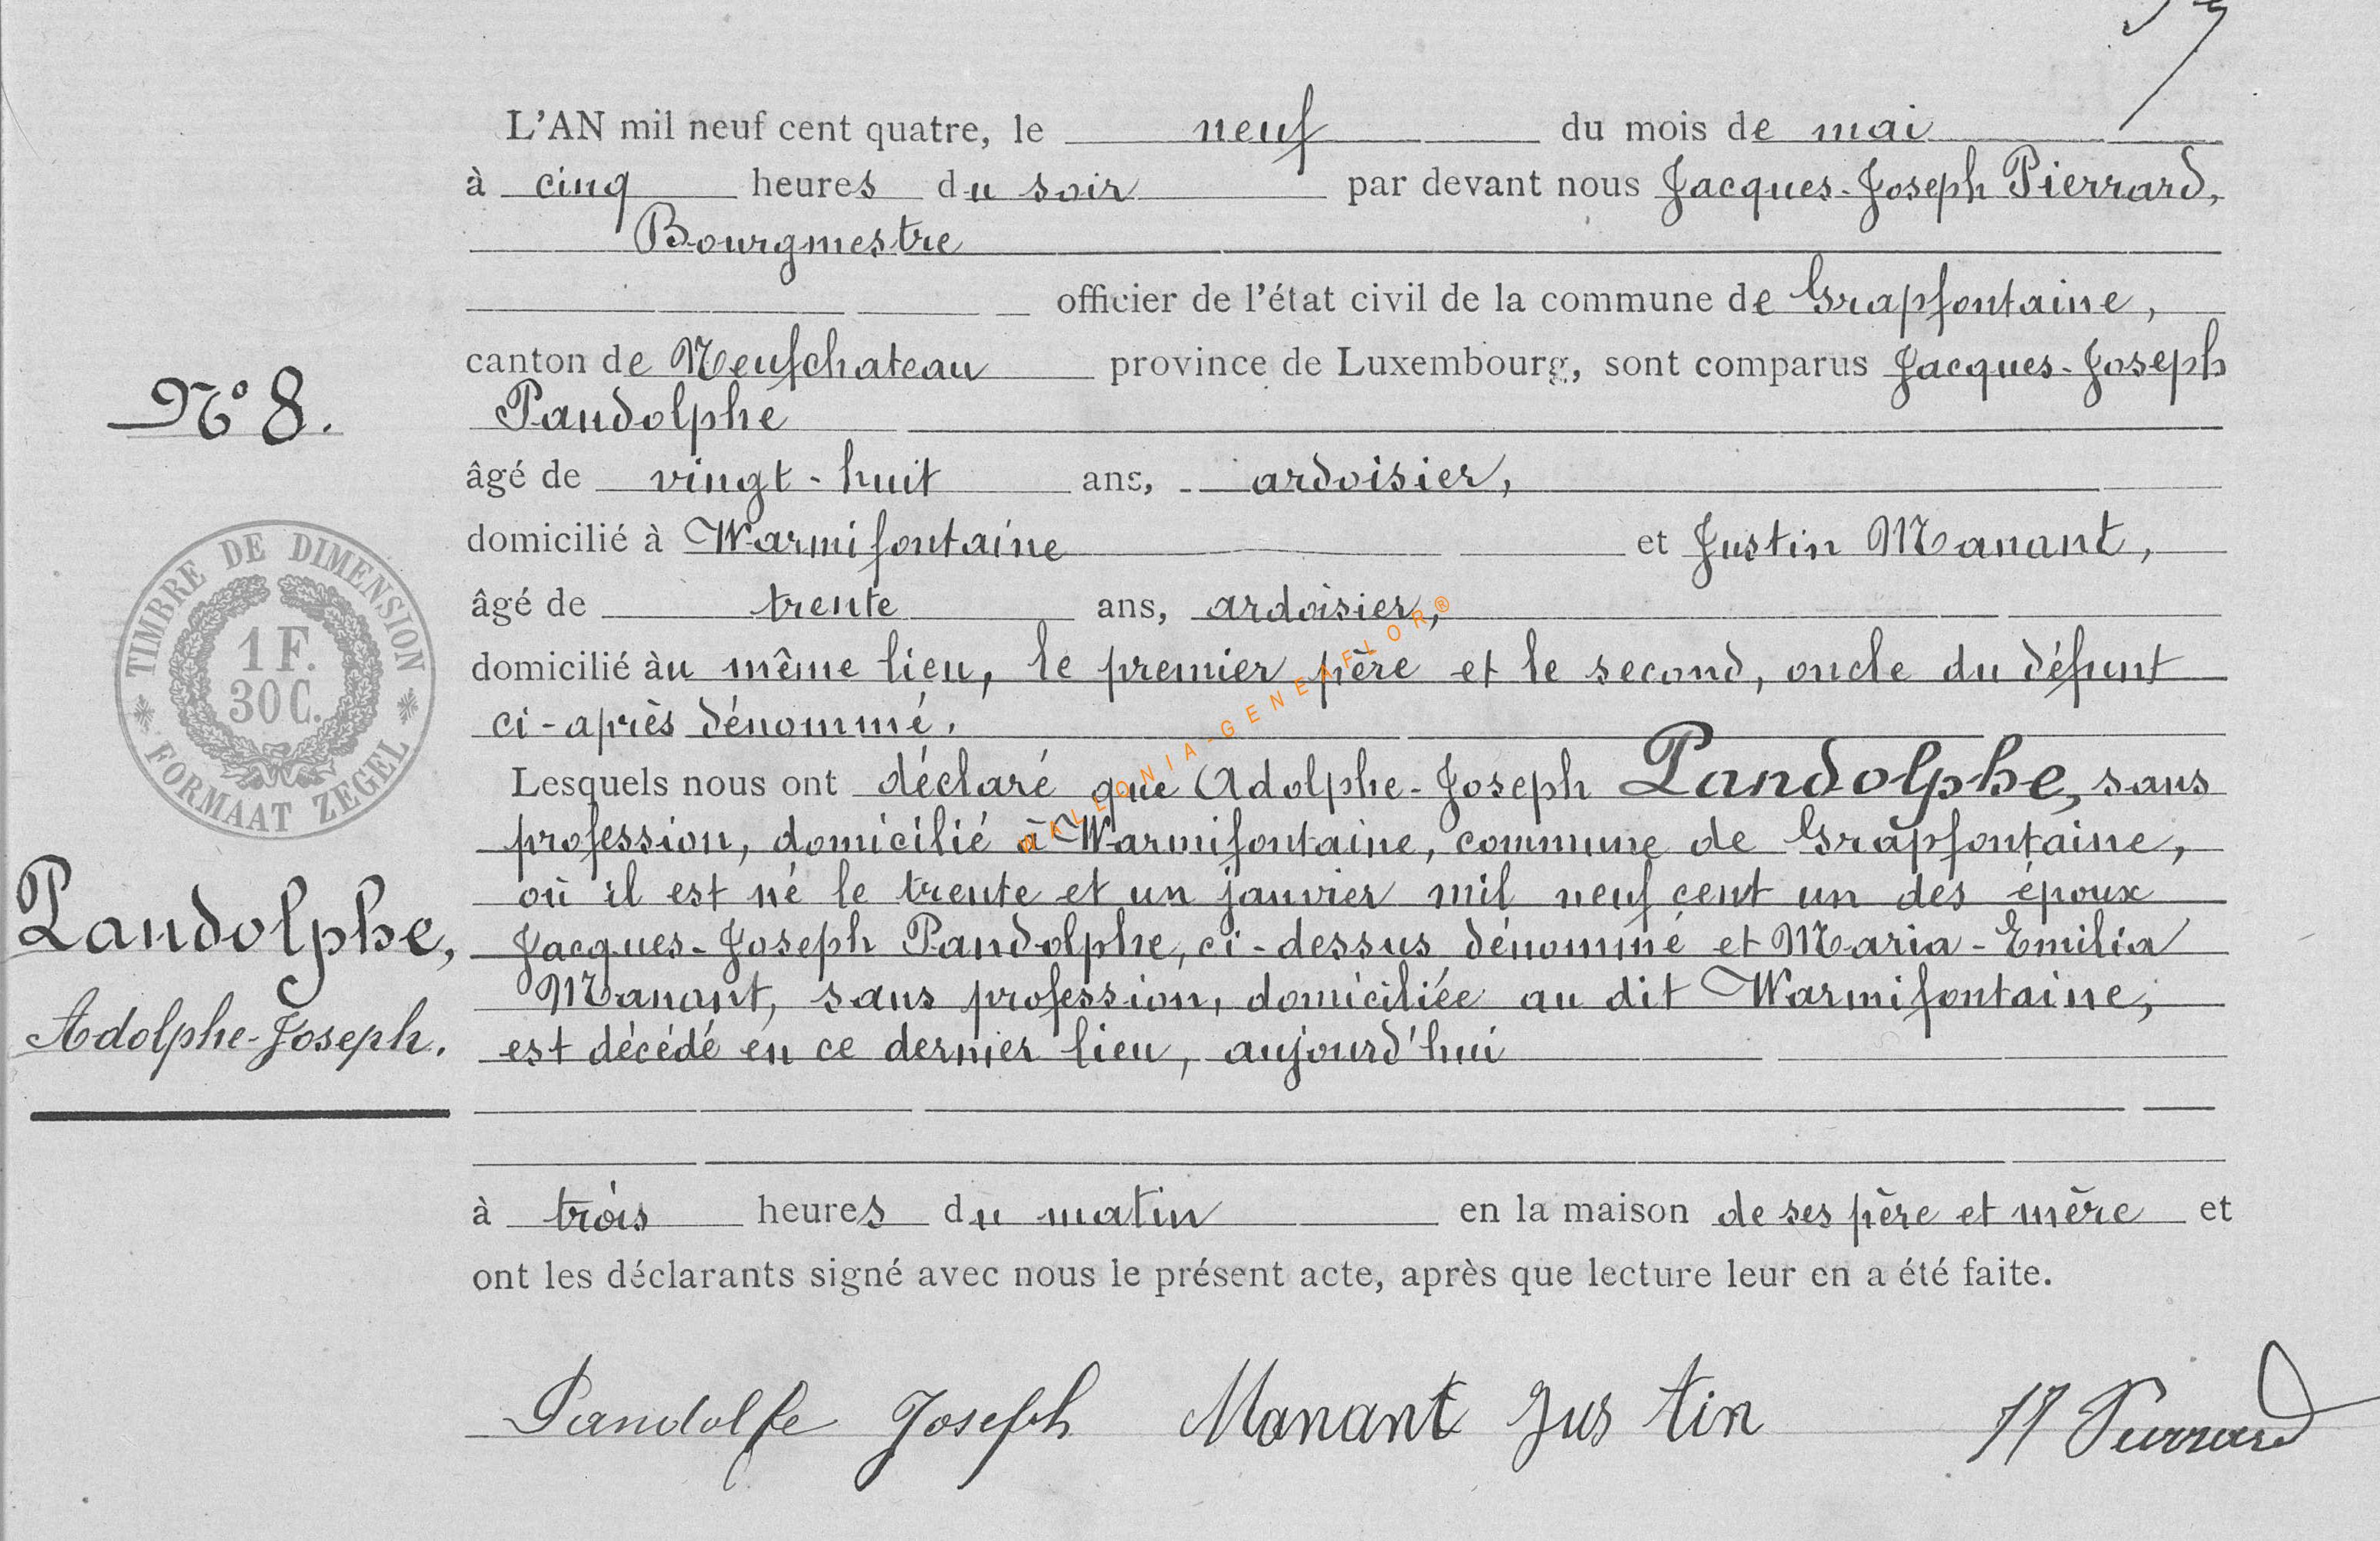 L'AN mil neuf cent quatre, le neuf du mois de mai
à cinq heures du soir par devant nous Jacques-Joseph Pierrard,
Bourgmestre
officier de l'état civil de la commune de Grapfontaine,
canton de Neufchateau province de Luxembourg, sont comparus Jacques-Joseph
Pandolphe
âgé de vingt-huit ans, ardoisier,
domicilié à Warmifontaine et Justin Manant,
âgé de trente ans, ardoisier,
domicilié àu même lieu, le premier père et le second, oncle du défunt
ci-après dénommé.
Lesquels nous ont déclaré que Adolphe-Joseph Pandolphe, sans
profession, domicilié à Warmifontaine, commune de Grapfontaine,
où il est né le trente et un janvier mil neuf cent un des époux
Jacques-Joseph Pandolphe, ci-dessus dénommé et Maria-Emilia
Manant, sans profession, domiciliée au dit Warmifontaine,
est décédé en ce dernier lieu, aujourd'hui
à trois heures du matin en la maison de ses père et mère et
ont les déclarants signé avec nous le présent acte, après que lecture leur en a été faite.
Pandolfe Joseph Manant Justin JJ Pierrard
N° 8.
TIMBRE DE DIMENSION
1 F.
30 C.
FORMAAT ZEGEL
Pandolphe,
Adolphe-Joseph.
WALLONIA-GENEAFLOR®